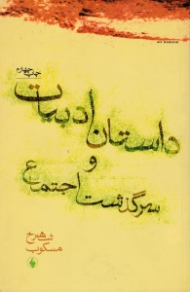 چاپ چهارم
داستان ادبیات
و
سرگذشت اجتماع
شاهرخ
مسکوب